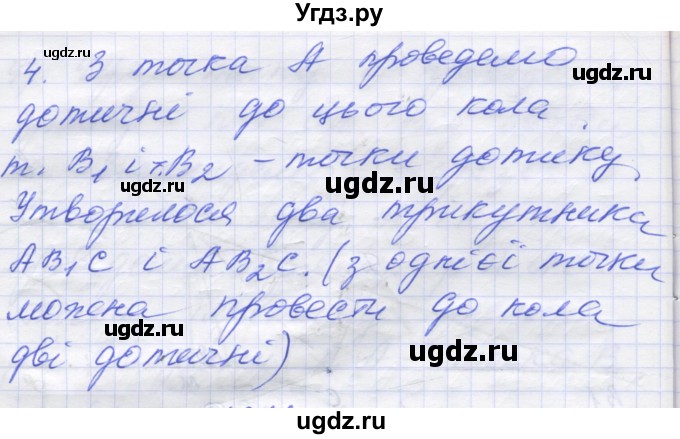 Угдз.ру
4. З точка А проведемо
дотичні до цього кола
т. В₁ і т. В₂ – точки дотику
Утворилося два трикутника
АВ₁С і АВ₂С. (з однієї точки
можна провести до кола
дві дотичні)
ugdz.ru
ugdz.ru
ugdz.ru
ugdz.ru
ugdz.ru
ugdz.ru
ugdz.ru
ugdz.ru
ugdz.ru